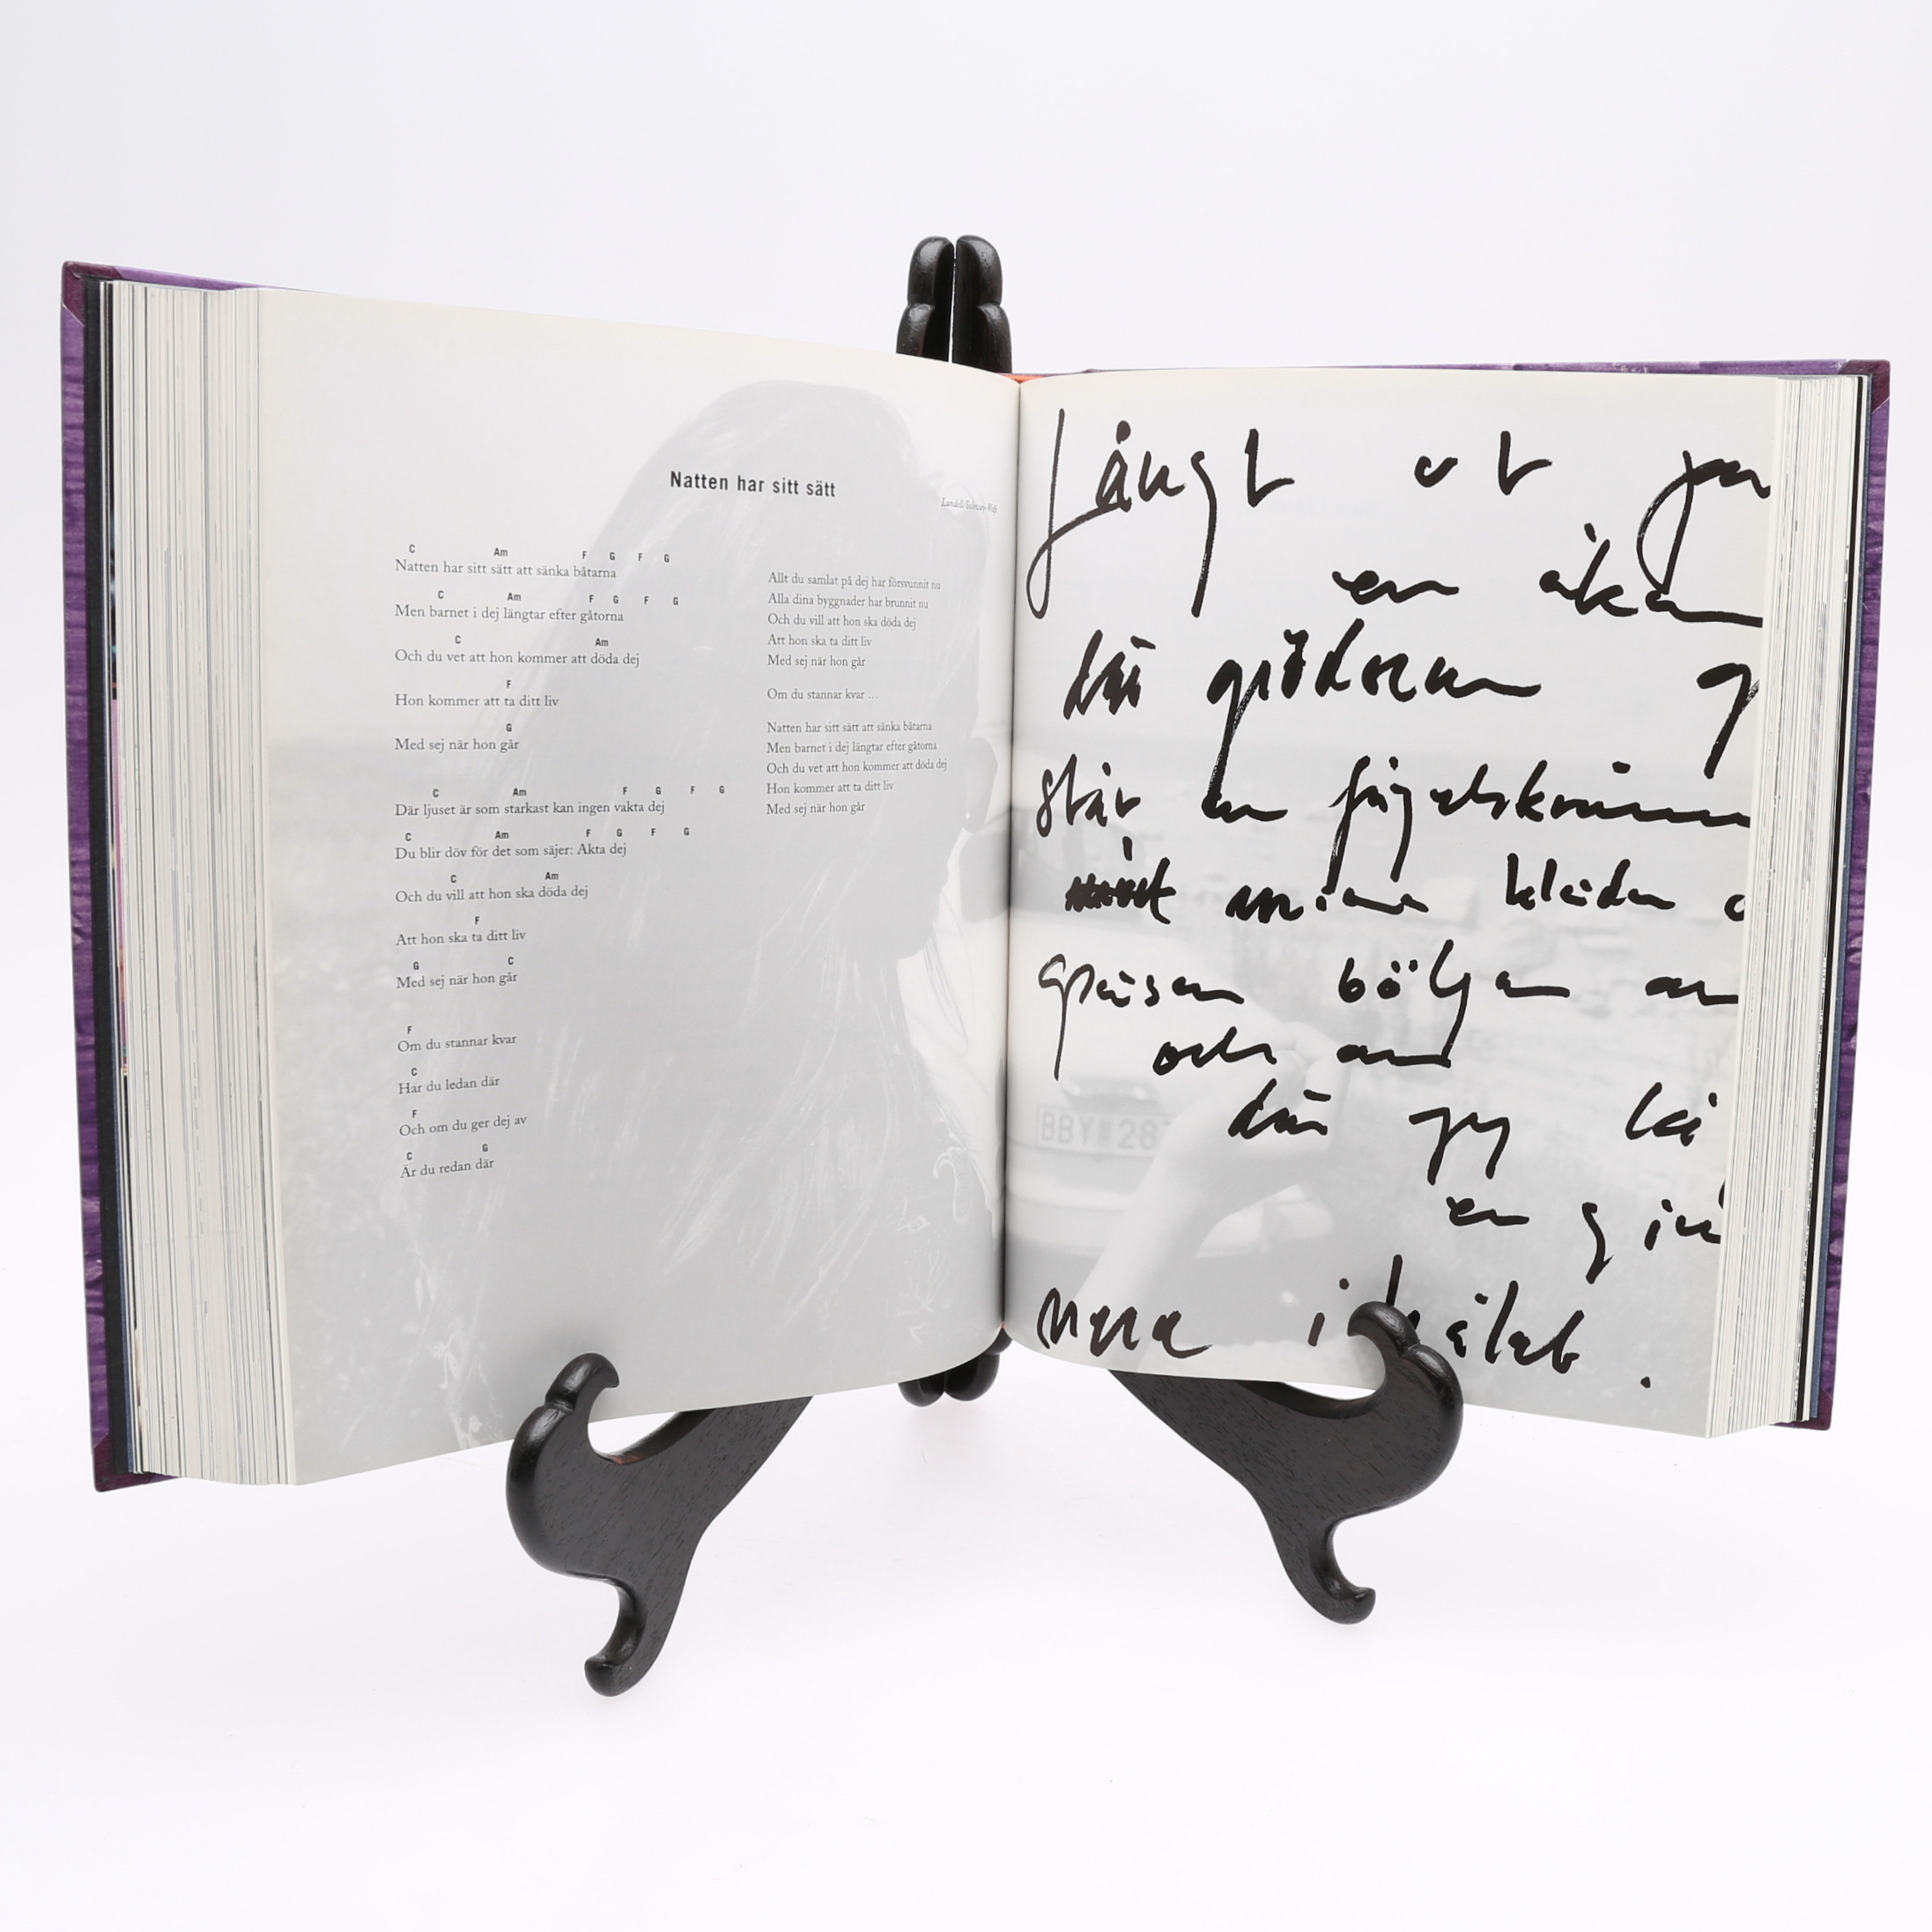 Natten har sitt sätt
C Am F G F G
Natten har sitt sätt att sänka båtarna
C Am F G F G
Men barnet i dej längtar efter gåtorna
C Am
Och du vet att hon kommer att döda dej
F
Hon kommer att ta ditt liv
G
Med sej när hon går
C Am F G F G
Där ljuset är som starkast kan ingen vakta dej
C Am F G F G
Du blir döv för det som säjer: Akta dej
C Am
Och du vill att hon ska döda dej
F
Att hon ska ta ditt liv
G C
Med sej när hon går
F
Om du stannar kvar
C
Har du ledan där
F
Och om du ger dej av
C G
Är du redan där
Allt du samlat på dej har försvunnit nu
Alla dina byggnader har brunnit nu
Och du vill att hon ska döda dej
Att hon ska ta ditt liv
Med sej när hon går
Om du stannar kvar ...
Natten har sitt sätt att sänka båtarna
Men barnet i dej längtar efter gåtorna
Och du vet att hon kommer att döda dej
Hon kommer att ta ditt liv
Med sej när hon går
Långt ut
en
där grödorna
står en
mina kläder
gräsen böljar
och
där
en
i
BBY 28